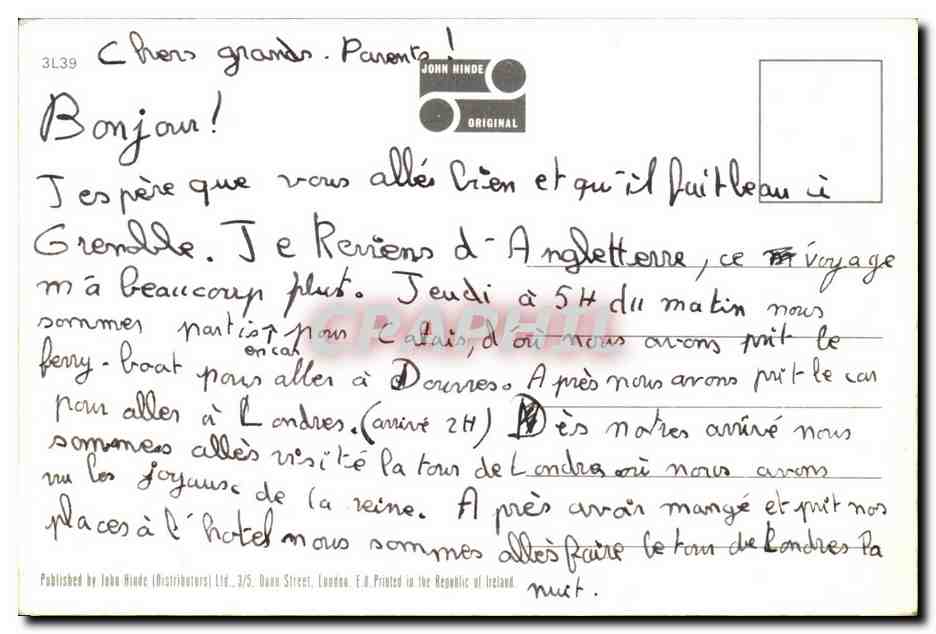 Chers grands-Parents!
3L39
JOHN HINDE
ORIGINAL
Bonjour!
J espère que vous allés bien et qu'il fait beau à
Grenoble. Je Reviens d'Angletterre, ce voyage
m'à beaucoup plut. Jeudi à 5H du matin nous
sommes partis en car pour Calais, d'où nous avons prit le
ferry-boat pour aller à Douvres. Après nous avons prit le car
pour aller à Londres. (arrivé 2H) Dès notres arrivé nous
sommes allès visité la tour de Londres où nous avons
vu les joyaux de la reine. Après avoir mangé et prit nos
places à l'hotel nous sommes allès faire le tour de Londres la
nuit.
CPAPHIL
Published by John Hinde (Distributors) Ltd., 3/5, Dunn Street, London. E.8. Printed in the Republic of Ireland.